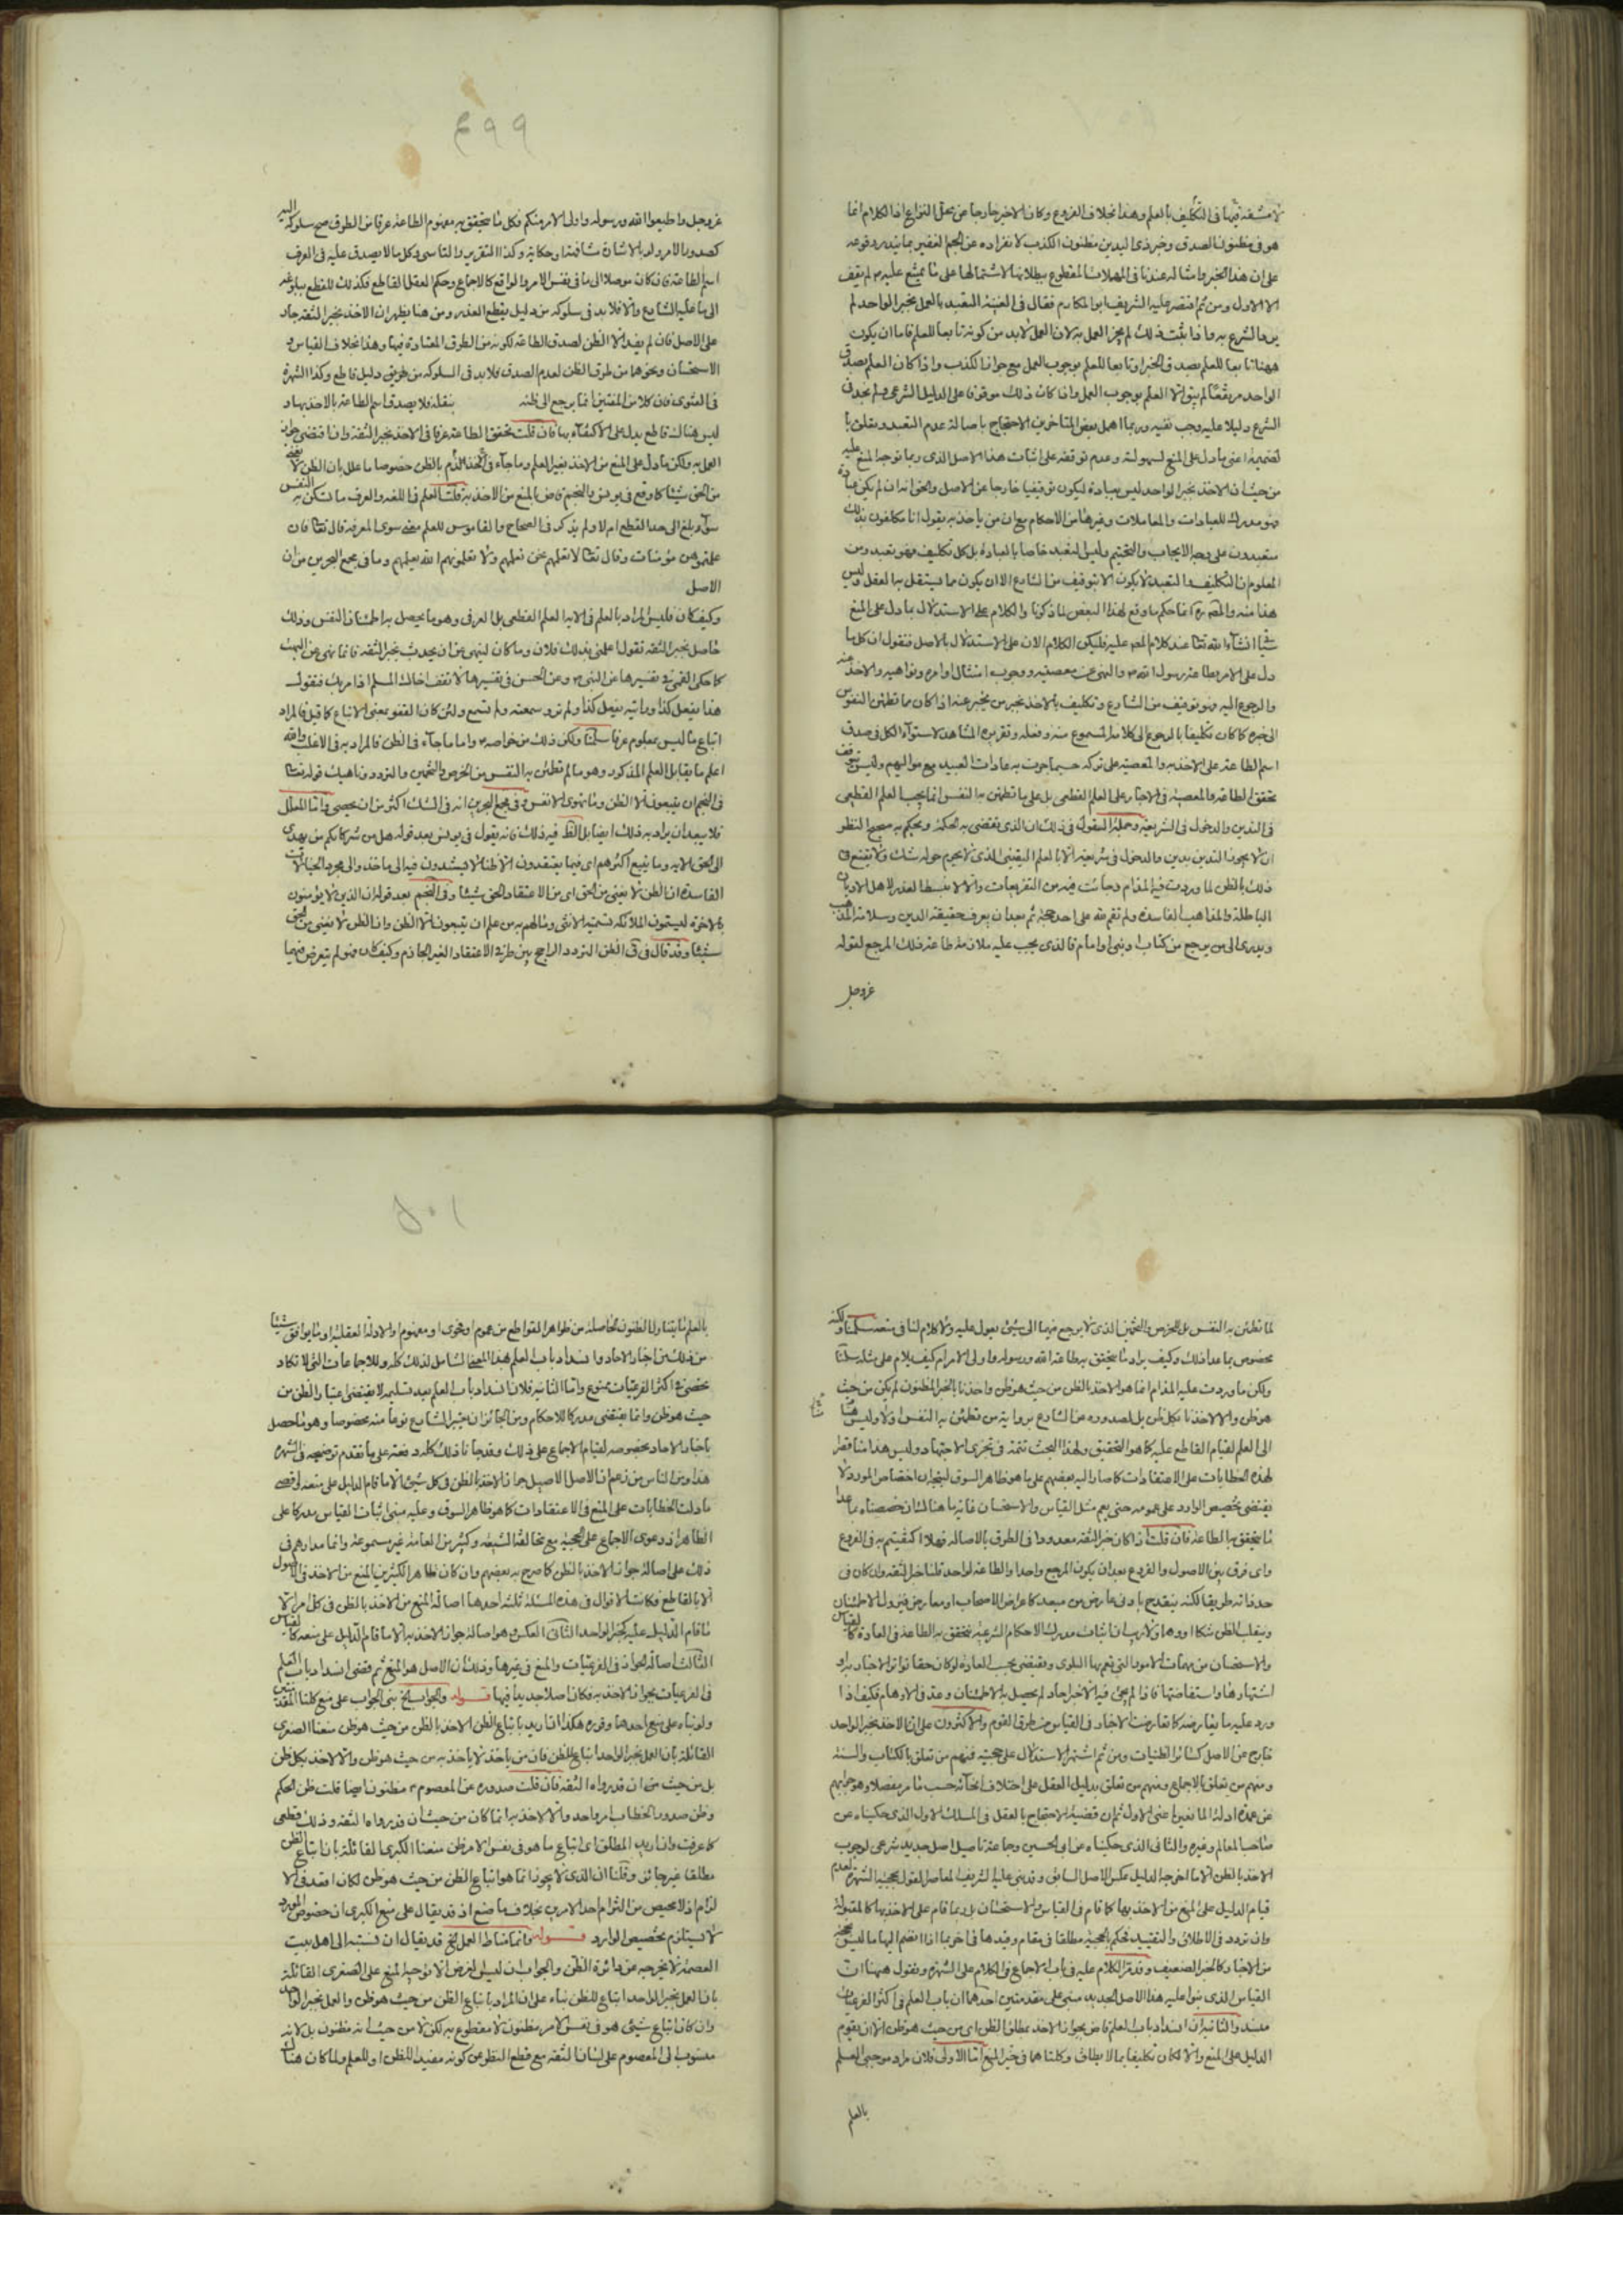 لا مشقة فيها في التكليف بالعلم وهذا بخلاف الفروع وكان الاخير خارجا عن محل النزاع اذ الكلام انما
هو في مظنون الصدق وخبر ذي اليدين مظنون الكذب لانفراده عن الجم الغفير بما يندر وقوعه
على ان هذا الخبر وامثاله عندنا في المقطوع ببطلانها لاشتمالها على ما يمتنع عليه ص لم يقف
الا الاول ومن ثم اقتصر عليه الشريف ابو المكارم فقال في الغنية التعبد بالعمل بخبر الواحد لم
يرد الشرع به واذا ثبت ذلك لم يجز العمل به لان العمل لا بد من كونه تابعا للعلم فاما ان يكون
ههنا تابعا للعلم بصدق الخبر او تابعا للعلم بوجوب العمل مع جواز الكذب واذا كان العلم بصدق
الواحد مرتفعا لم يبق الا العلم بوجوب العمل واذا كان ذلك موقوفا على الدليل الشرعي ولم نجد في
الشرع دليلا عليه وجب نفيه وربما اهمل بعض المتاخرين الاحتجاج باصالة عدم التعبد وتعلق با
لضميمة اعني ما دل على المنع لسهولته وعدم توقفه على اثبات هذا الاصل الذي ربما توجه المنع عليه
من حيث ان الاخذ بخبر الواحد ليس بعبادة ليكون توقيفيا خارجا عن الاصل والحق انه ان لم يكن عبادة
فهو مدرك للعبادات والمعاملات وغيرها من الاحكام مع ان من ياخذ به يقول انا مكلفون بذلك
متعبدون على وجه الايجاب والتحتيم وليس التعبد خاصا بالعبادة بل كل تكليف فهو تعبد ومن
المعلوم ان التكليف والتعبد لا يكون الا بتوقيف من الشارع الا ان يكون مما يستقل به العقل وليس
هذا منه والمص ره انما حكم ما وقع لهذا البعض لما ذكرنا والكلام على الاستدلال بما دل على المنع
شيئا انشاء الله تعا عند كلام المص عليه فليكن الكلام الان على الاستدلال بالاصل فنقول ان كل ما
دل على الامر بطاعة رسول الله ص والنهي عن معصيته ووجوب امتثال اوامره ونواهيه والاخذ عنه
والرجوع اليه فهو توقيف من الشارع وتكليف بالاخذ بخبر من يخبر عنه اذا كان مما تطمئن النفوس
الى خبره كما كان تكليفا بالرجوع الى كلامه المسموع منه وفعله وتقريره المشاهد لاستواء الكل في صدق
اسم الطاعة على الاخذ به والمعصية على تركه حسبما جرت به عادات العبيد مع مواليهم وليس يتوقف
تحقق الطاعة والمعصية في الاخبار على العلم القطعي بل على ما تطمئن به النفس انما يجب العلم القطعي
في التدين والدخول في الشريعة وجملة القول في ذلك ان الذي تقضي به الحكمة ويحكم به صحيح النظر
ان لا يجوز التدين بدين والدخول في شريعة الا بالعلم اليقيني الذي لا يحوم حوله شك ولا تقنع في
ذلك بالظن لما وردت فيه المذام وجائت فيه من التقريعات والا لانبسط العذر لاهل الاديان
الباطلة والمذاهب الفاسدة ولم تقم لله على احد حجة ثم بعد ان يعرف حقيقة الدين وسلامة المذهب
ويدري الى من يرجع من كتاب او نبي او امام فالذي يجب عليه ملازمة طاعة ذلك المرجع لقوله
عز وجل
٤٩٩
عز وجل واطيعوا الله ورسوله واولى الامر منكم فكل ما يتحقق به مفهوم الطاعة عرفا من الطرق صح سلوكه اليه
كصدور الامر والاشارة مشافهة او حكاية وكذا التقرير والتاسي وكل ما لا يصدق عليه في العرف
اسم الطاعة فان كان موصلا الى ما في نفس الامر والواقع كالاجماع وحكم العقل القاطع فكذلك للقطع ببلوغه
الى ما عليه الشارع والا فلا بد في سلوكه من دليل يقطع العذر ومن هنا يظهر ان الاخذ بخبر الثقة جار
على الاصل فان لم يفد الا الظن لصدق الطاعة لكونه من الطرق المعتادة فيها وهذا بخلاف القياس و
الاستحسان ونحوهما من طرق الظن لعدم الصدق فلا بد في السلوك من طريق دليل قاطع وكذا الشهرة
في الفتوى فان كلا من المفتين انما يرجع الى ظنه بنقله فلا يصدق اسم الطاعة بالاخذ بها و
ليس هناك قاطع يدل على الاكتفاء بها فان قلت تحقق الطاعة عرفا في الاخذ بخبر الثقة وان اقتضى جواز
العمل به ولكن ما دل على المنع من الاخذ بغير العلم وما جاء في الذم بالظن خصوصا ما علل بان الظن لا يغني
من الحق شيئا كما وقع في يونس والنجم قاض بالمنع من الاخذ به قلت العلم في اللغة والعرف ما تسكن به النفس
سواء بلغ الى حد القطع ام لا ولم يذكر في الصحاح والقاموس للعلم معنى سوى المعرفة قال تعا فان
علمتموهن مؤمنات وقال تعا لا تعلمهم نحن نعلمهم ولا تعلمونهم الله يعلمهم وما في مجمع البحرين من ان
الاصل
وكيف كان فليس المراد بالعلم في الايه العلم القطعي بل العرفي وهو ما يحصل به اطمئنان النفس وذلك
حاصل بخبر الثقة تقول اعلمني بذلك فلان وما كان لينهى عن ان يحدث بخبر الثقة فانما نهى عن البهت
كما حكى القمي في تفسيرها عن النبي ص وعن الحسن في تفسيرها لا تقف اخاك المسلم اذا مر بك فتقول
هذا يفعل كذا ورايته يفعل كذا ولم تره وسمعته ولم تسمع ولئن كان القفو بمعنى الاتباع كما قيل فالمراد
اتباع ما ليس بمعلوم عرفا سلمنا ولكن ذلك من خواصه ص واما ما جاء في الظن فالمراد به في الاغلب والله
اعلم ما يقابل العلم المذكور وهو ما لم تطمئن به النفس من الخرص والتخمين والتردد وناهيك قوله تعا
في النجم ان يتبعون الا الظن وما تهوى الانفس وفي مجمع البحرين انه في الشك اكثر من ان يحصى واما المعلل
فلا يبعد ان يراد به ذلك ايضا بل الظ فيه ذلك فانه يقول في يونس بعد قوله هل من شركائكم من يهدي
الى الحق الايه وما يتبع اكثرهم اي فيما يعتقدون الا ظنا لا يستندون فيه الى ماخذ والى مجرد الخيالات
الفاسدة ان الظن لا يغني من الحق اي من الاعتقاد الحق شيئا وفي النجم بعد قوله ان الذين لا يؤمنون
بالاخرة ليسمون الملائكة تسمية الانثى وما لهم به من علم ان يتبعون الا الظن وان الظن لا يغني من الحق
شيئا وقد قال في ق الظن التردد الراجح بين طرفي الاعتقاد الغير الجازم وكيف كان فهو لم يتعرض فيهما
لما تطمئن به النفس بل للخرص والتخمين الذي لا يرجع فيهما الى شيء يعول عليه ولا كلام لنا في منعه سلمنا ولكنه
مخصوص بما عدا ذلك وكيف يراد ما يتحقق به طاعة الله ورسوله واولى الامر ام كيف يلام على مثله سلمنا
ولكن ما وردت عليه المذام انما هو الاخذ بالظن من حيث هو ظن واخذنا بالخبر المظنون لم يكن من حيث
هو ظن والا لاخذنا بكل ظن بل لصدوره عن الشارع برواية من تطمئن به النفس اولا وليس هنا
الى العلم لقيام القاطع عليه كما هو التحقيق ولهذا البحث تتمة في تجزي الاجتهاد وليس هذا منا قصر
لهذه الخطابات على الاعتقادات كما صار اليه بعضهم على ما هو ظاهر السوق ليتجه ان اختصاص المورد لا
يقتضي تخصيص الوارد على عمومه حتى يعم مثل القياس والاستحسان غاية ما هناك ان خصصناه بما عدا
ما يتحقق به الطاعة فان قلت اذا كان خبر الثقة معدودا في الطرق بالاصالة فهلا اكتفيتم به في الفروع
واي فرق بين الاصول والفروع بعد ان يكون المرجع واحدا والطاعة لواحد قلنا خبر الثقة وان كان في
حد ذاته طريقا لكنه ينقدح بادنى عارض من مبعد كاعراض الاصحاب او معارض فيزول الاطمئنان
وينقلب الظن شكا او وهما ولا ريب ان اثبات مدرك الاحكام الشرعية تتحقق به الطاعة في العادة كالقياس
والاستحسان من مهمات الامور التي تعم بها البلوى ويقتضي بحسب العادة لو كان حقا تواتر الاخبار به او
اشتهارها واستفاضتها فاذا لم يجئ فيه الا خبر احاد لم يحصل به الاطمئنان وعد في الاوهام فكيف اذا
ورد عليه ما يعارضه كما تعارضت الاخبار في القياس من طرق القوم والاكثرون على ان الاخذ بخبر الواحد
خارج عن الاصل كسائر الظنيات ومن ثم اشتهر الاستدلال على حجيته فمنهم من تعلق بالكتاب والسنة
ومنهم من تعلق بالاجماع ومنهم من تعلق بدليل العقل على اختلاف انحائه حسب ما مر مفصلا وهو جوابهم
عن عمدة ادلة المانعين اعني الاول ثم ان قضية الاحتجاج بالعقل في المسلك الاول الذي حكيناه عن
صاحب المعالم وغيره والثاني الذي حكيناه عن ابي الحسين وجماعة تاصيل اصل جديد شرعي لوجوب
الاخذ بالظن الا ما اخرجه الدليل عكس الاصل السابق وقد بنى عليه الشريف المعاصر القول بحجية الشهرة لعدم
قيام الدليل على المنع من الاخذ بها كما قام في القياس والاستحسان بل ربما قام على الاخذ بها كالمقبولة
وان تردد في الاطلاق والتقييد فحكم بالحجية مطلقا في مقام وقيدها في اخر بما اذا انضم اليها ما ليس بحجة
من الاخبار كالخبر الضعيف وقد مر الكلام عليه في باب الاجماع في الكلام على الشهرة ونقول ههنا ان
القياس الذي بنوا عليه هذا الاصل الجديد مبني على مقدمتين احدهما ان باب العلم في اكثر الفرعيات
منسد والثانية ان انسداد باب العلم قاض بجواز الاخذ بمطلق الظن اي من حيث هو ظن الا ان يقوم
الدليل على المنع والا لكان تكليفا بما لا يطاق وكلتاهما في حيز المنع اما الاولى فلان مراد موجبي العلم
بالعلم
٥٠١
بالعلم ما يتناول الظنون الحاصلة من ظواهر القواطع من عموم او فحوى او مفهوم والادلة العقلية او ما يوافق شيئا
من ذلك من اخبار الاحاد وانسداد باب العلم بهذا المعنى الشامل لذلك كله وللاجماعات التي لا تكاد
تحصى في اكثر الفرعيات ممنوع واما الثانية فلان انسداد باب العلم بعد تسليمه لا يقتضي اعتبار الظن من
حيث هو ظن وانما يقتضي مدركا للاحكام ومن الجائز ان يعتبر الشارع نوعا منه مخصوصا وهو ما حصل
باخبار الاحاد بخصوصه لقيام الاجماع على ذلك وقد جاءنا ذلك كله دفعة على ما تقدم توضيحه في الشهرة
هذا ومن الناس من زعم ان الاصل الاصيل جواز الاخذ بالظن في كل شيء الا ما قام الدليل على منعه لو قصر
ما دلت الخطابات على المنع في الاعتقادات كما هو ظاهر السوق وعليه مبنى اثبات القياس مدركا على
الظاهر اذ دعوى الاجماع على الحجية مع مخالفة الشيعة وكثير من العامة غير مسموعة وانما مدارهم في
ذلك على اصالة جواز الاخذ بالظن كما صرح به بعضهم وان كان ظاهر الكثير من المنع من الاخذ في الاصول
الا بالقاطع فكانت الاقوال في هذه المسئلة ثلثة احدها اصالة المنع من الاخذ بالظن في كل امر الا
ما قام الدليل عليه كخبر الواحد الثاني العكس وهو اصالة جواز الاخذ به الا ما قام الدليل على منعه كالقياس
الثالث اصالة الجواز في الفرعيات والمنع في غيرها وذلك ان الاصل هو المنع ثم قضى انسداد باب العلم
في الفرعيات بجواز الاخذ به فكان اصلا جديدا فيها قوله والجواب الخ مبنى الجواب على منع كلتا المقدمتين
ولو بناه على منع احدهما وقرره هكذا ان اريد باتباع الظن الاخذ بالظن من حيث هو ظن منعنا الصغرى
القائلة بان العمل بخبر الواحد اتباع للظن فان من ياخذ لا ياخذ به من حيث هو ظن والا لاخذ بكل ظن
بل من حيث ان قد رواه الثقة فان قلت صدوره عن المعصوم ع مظنون ايضا قلت ظن الحكم
وظن صدور الخطاب امر واحد والاخذ به انما كان من حيث ان قد رواه الثقة وذلك قطعي
كما عرفت وان اريد المطلق اي اتباع ما هو في نفس الامر ظن منعنا الكبرى القائلة بان اتباع الظن
مطلقا غير جائز وقلنا ان الذي لا يجوز انما هو اتباع الظن من حيث هو ظن لكان اقعد في الا
لزام اذ لا محيص من التزام احد الامرين بخلاف ما صنع اذ قد يقال على منع الكبرى ان خصوص المورد
لا يستلزم تخصيص الوارد قوله وانما مناط العمل الخ قد يقال ان نسبته الى اهل بيت
العصمة لا يخرجه عن دائرة الظن والجواب ان ليس الغرض الا توجيه المنع على الصغرى القائلة
بان العمل بخبر الواحد اتباع للظن بناء على ان المراد باتباع الظن من حيث هو ظن والعمل بخبر الواحد
وان كان اتباع شيء هو في نفس الامر مظنون لا مقطوع به لكن لا من حيث انه مظنون بل لانه
منسوب الى المعصوم على لسان الثقة مع قطع النظر عن كونه مفيدا للظن او للعلم ولما كان هناك